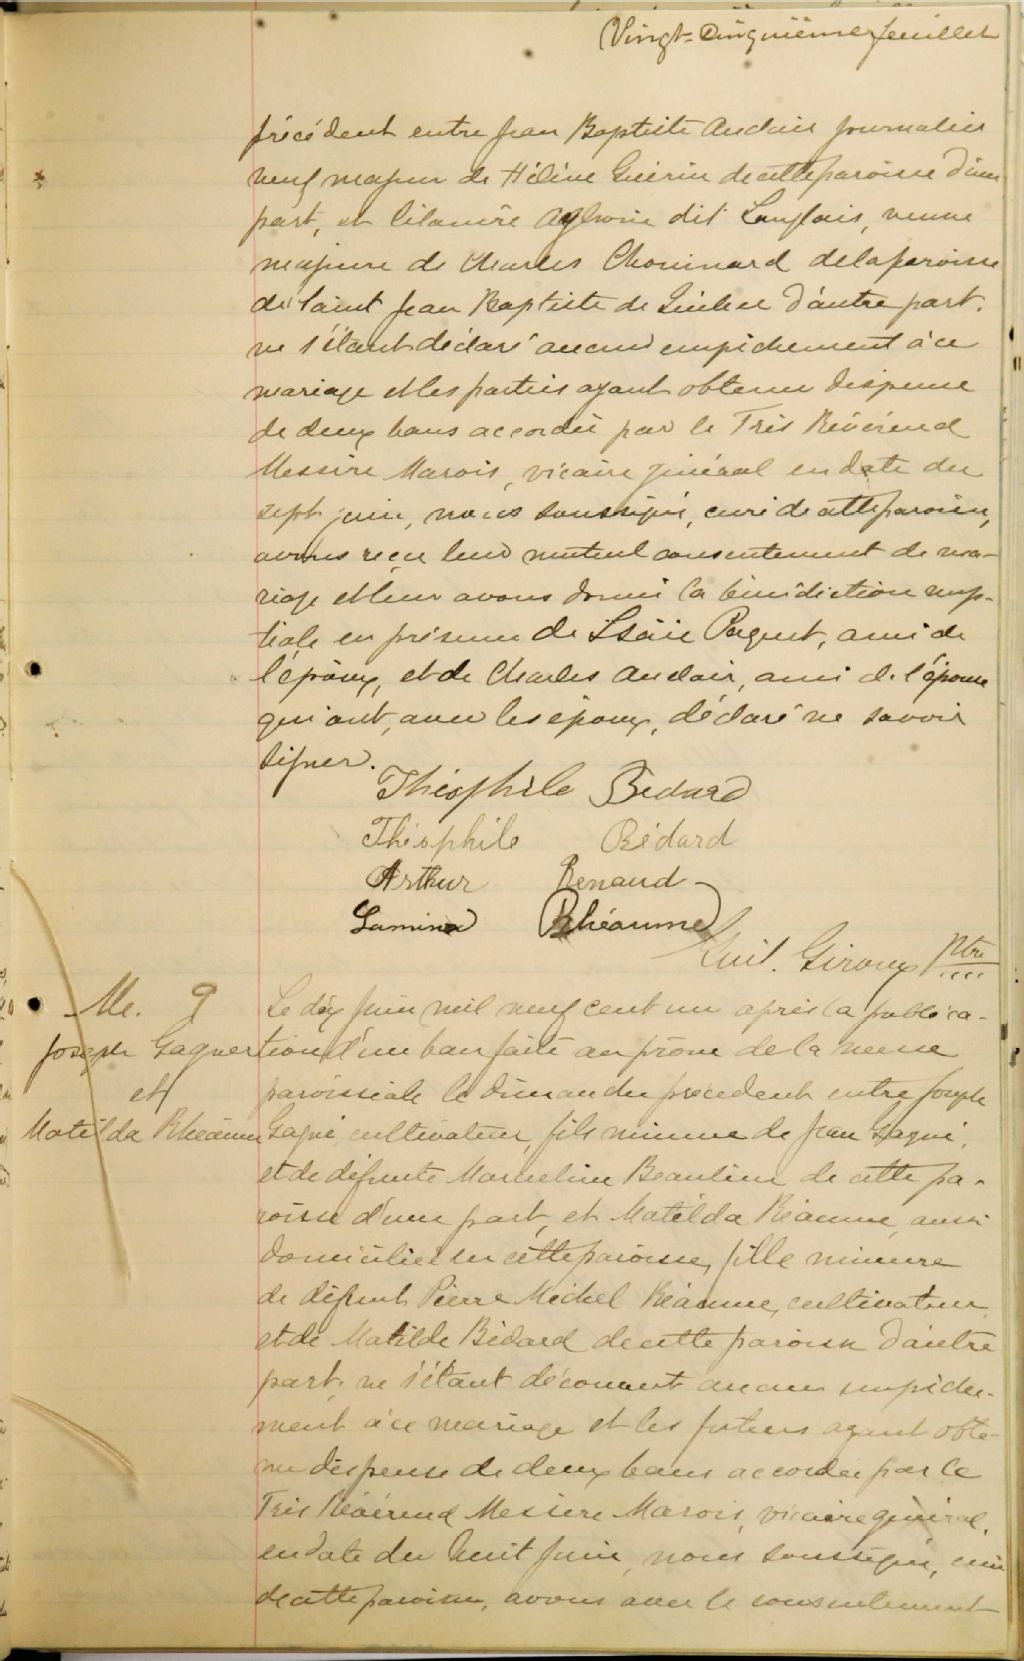 Vingt-Cinquième feuillet
précédent entre Jean Baptiste Auclair journalier
veuf majeur de Hélène Guérin de cette paroisse d'une
part, et dit Langlais, veuve
majeure de Charles Chouinard de la paroisse
de Saint Jean Baptiste de Québec d'autre part.
ne s'étant déclaré aucun empêchement à ce
mariage et les parties ayant obtenu dispense
de deux bans accordée par le Très Révérend
Messire Marois, vicaire général en date du
sept juin, nous soussigné, curé de cette paroisse,
avons reçu leur mutuel consentement de ma-
riage et leur avons donné la bénédiction nup-
tiale en présence de Isaïe Paquet, ami de
l'époux, et de Charles Auclair, ami de l'épouse
qui ont, avec les époux, déclaré ne savoir
signer.
Théophile Bédard
Théophile Bédard
Arthur Renaud
Lumina Rhéaume
Giroux Ptre
M. 9
Joseph Gagner
et
Matilda Rhéaume
Le dix Juin mil neuf cent un après la publica-
tion d'un ban faite au prône de la messe
paroissiale le dimanche précédent entre Joseph
Gagné, cultivateur, fils mineur de Jean Gagné,
et de défunte Marceline Beaulieu de cette pa-
roisse d'une part, et Matilda Réaume, aussi
domiciliée en cette paroisse, fille mineure
de défunt Pierre Michel Réaume, cultivateur
et de Matilde Bédard de cette paroisse d'autre
part, ne s'étant découvert aucun empêche-
ment à ce mariage et les futurs ayant obte-
nu dispense de deux bans accordée par le
Très Révérend Messire Marois, vicaire général,
en date du huit Juin, nous soussigné, curé
de cette paroisse, avons avec le consentement